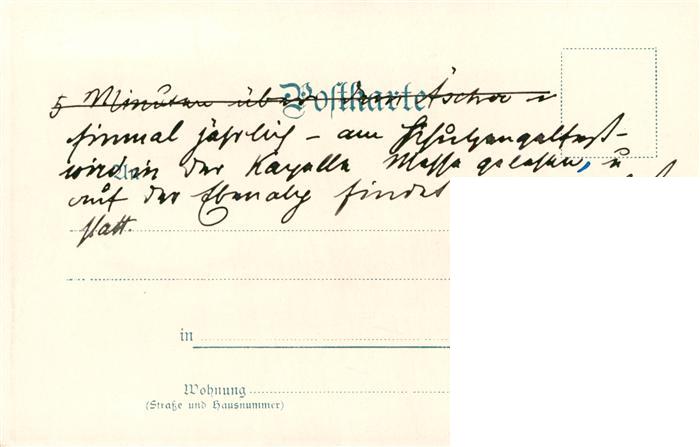 Postkarte
5 Minuten über dem Äscher u
Einmal jährlich – am Schutzengelfest –
wird in der Kapelle Messe gelesen, u
An
auf der Ebenalp findet
statt.
in
Wohnung
(Straße und Hausnummer)